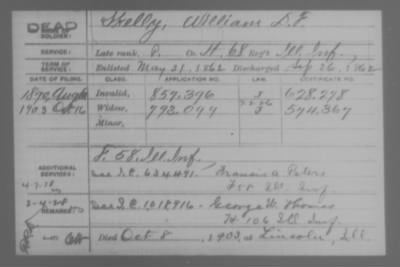 DEAD
SOLDIER: Skelly, William D. F.
SERVICE: Late rank, P. Co. H, 68 Reg't Ill. Inf.,
TERM OF SERVICE: Enlisted May 31, 1862 Discharged Sep 26, 1862
DATE OF FILING. CLASS. APPLICATION NO. LAW. CERTIFICATE NO.
1890 Invalid, 857.396 628.278
1903 Oct 16 Widow, 793.077 574.367
Minor,
F. 58. Ill. Inf.
ADDITIONAL SERVICES: See I.C. 634491, Francis A. Peters
F 58 Ill. Inf.
2-4-28
REMARKS: See I.C. 1,018,916 - George W. Thomas
H. 106 Ill Inf.
Died Oct 8, 1903, at Lincoln, Ill.